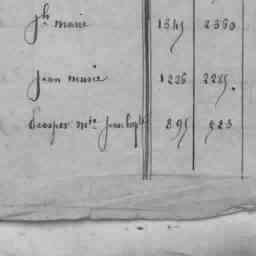 Jh marie 1545 2350
Jean marie 1226 2285.
Prosper mie Jean bapte 895 923